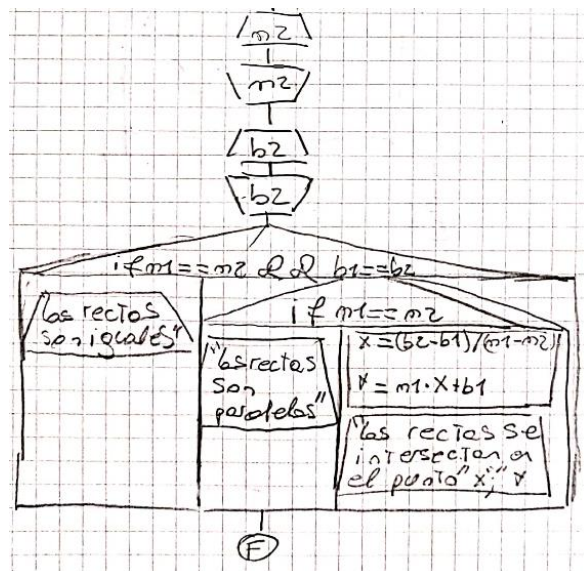 m2
m2
b2
b2
if m1==m2 && b1==b2
"las rectas
son iguales"
if m1==m2
"las rectas
son
paralelas"
x=(b2-b1)/(m1-m2)
y=m1·x+b1
"las rectas se
intersectan en
el punto" x";" y
F